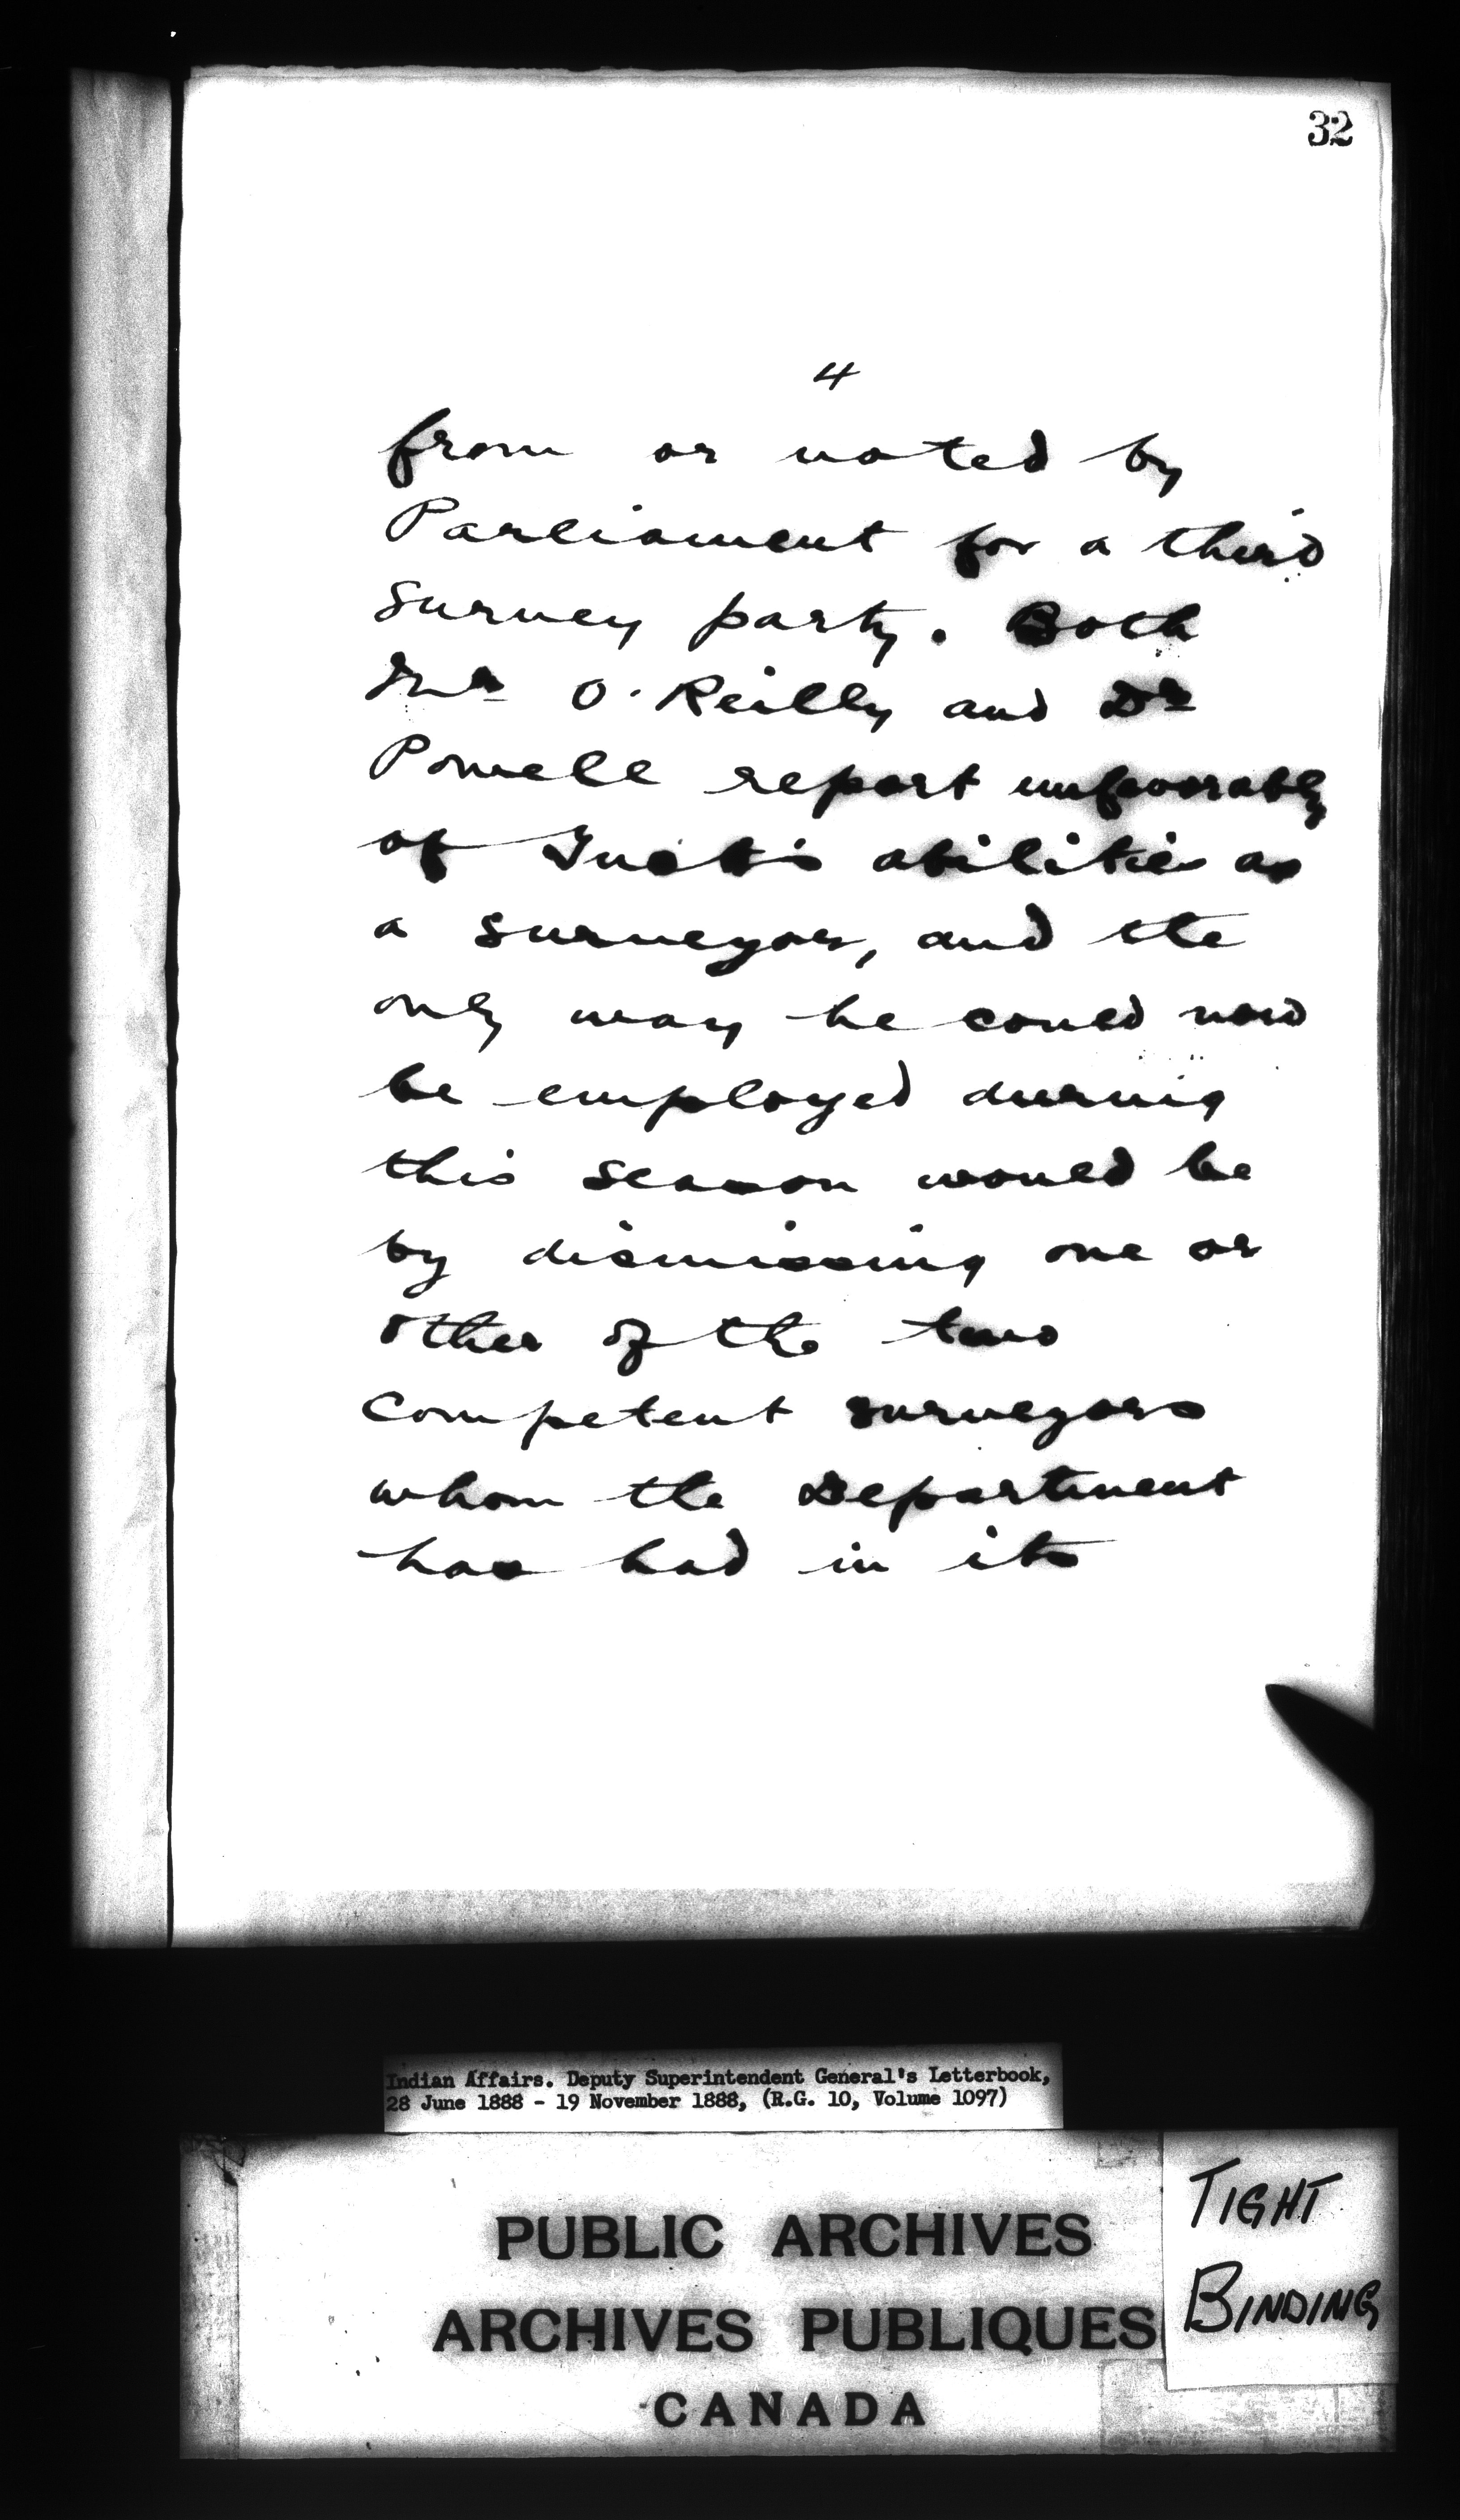 32
4
from or voted by
Parliament for a third
survey party. Both
Mr O'Reilly and Dr
Powell report unfavorably
of abilities as
a surveyor, and the
only way he could now
be employed during
this season would be
by dismissing one or
other of the two
competent surveyors
whom the Department
has had in its
Indian Affairs. Deputy Superintendent General's Letterbook,
28 June 1888 - 19 November 1888, (R.G. 10, Volume 1097)
PUBLIC ARCHIVES
ARCHIVES PUBLIQUES
CANADA
TIGHT
BINDING